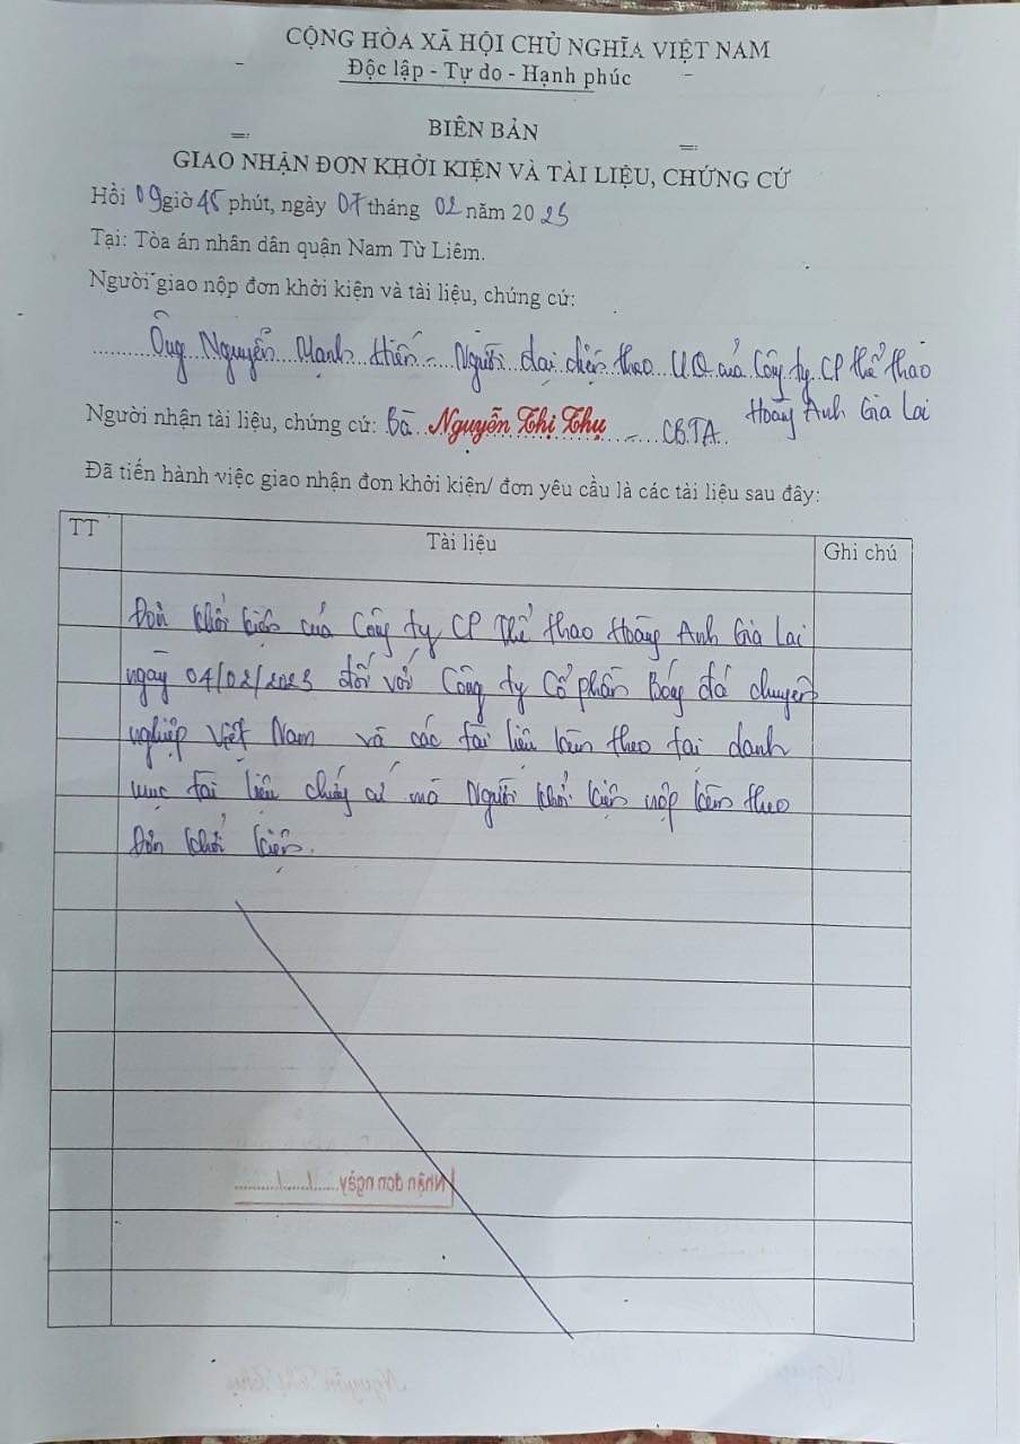 CỘNG HÒA XÃ HỘI CHỦ NGHĨA VIỆT NAM
Độc lập - Tự do - Hạnh phúc
BIÊN BẢN
GIAO NHẬN ĐƠN KHỞI KIỆN VÀ TÀI LIỆU, CHỨNG CỨ
Hồi 09 giờ 45 phút, ngày 07 tháng 02 năm 2023
Tại: Tòa án nhân dân quận Nam Từ Liêm.
Người giao nộp đơn khởi kiện và tài liệu, chứng cứ:
Ông Nguyễn Mạnh Hiến - Người đại diện theo UQ của Công ty CP thể thao
Hoàng Anh Gia Lai
Người nhận tài liệu, chứng cứ: Bà Nguyễn Thị Thu - CBTA
Đã tiến hành việc giao nhận đơn khởi kiện/ đơn yêu cầu là các tài liệu sau đây:
TT Tài liệu Ghi chú
Đơn khởi kiện của Công ty CP Thể thao Hoàng Anh Gia Lai
ngày 04/02/2023 đối với Công ty Cổ phần Bóng đá chuyên
nghiệp Việt Nam và các tài liệu kèm theo tại danh
mục tài liệu chứng cứ mà Người khởi kiện nộp kèm theo
Đơn khởi kiện.
Nhận đơn ngày....../....../..........
Nguyễn Thị Thu